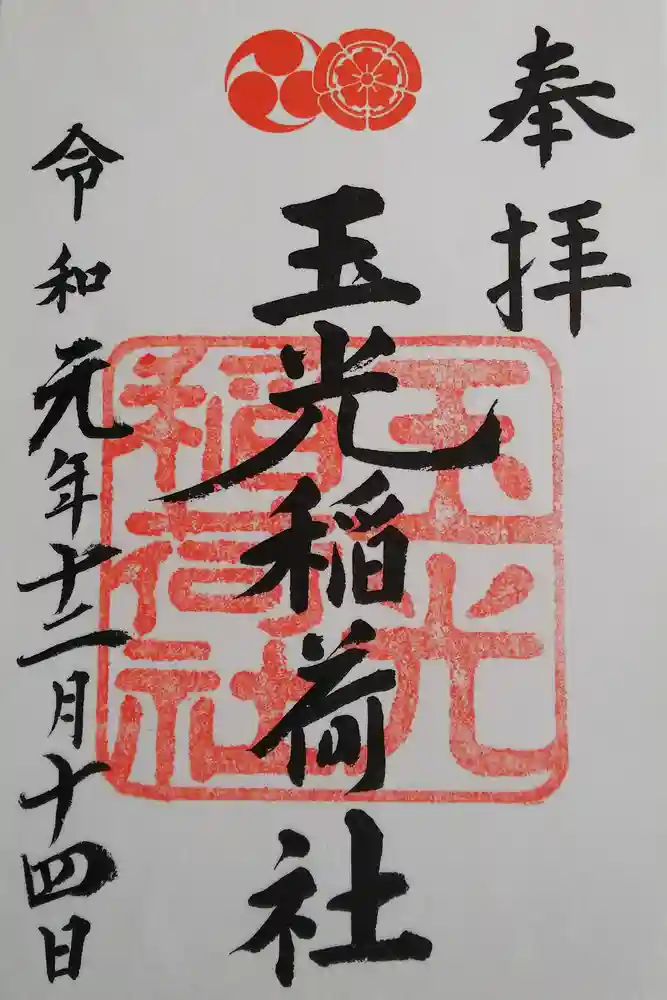 奉拝
玉光稲荷社
玉光稲荷社
令和元年十二月十四日